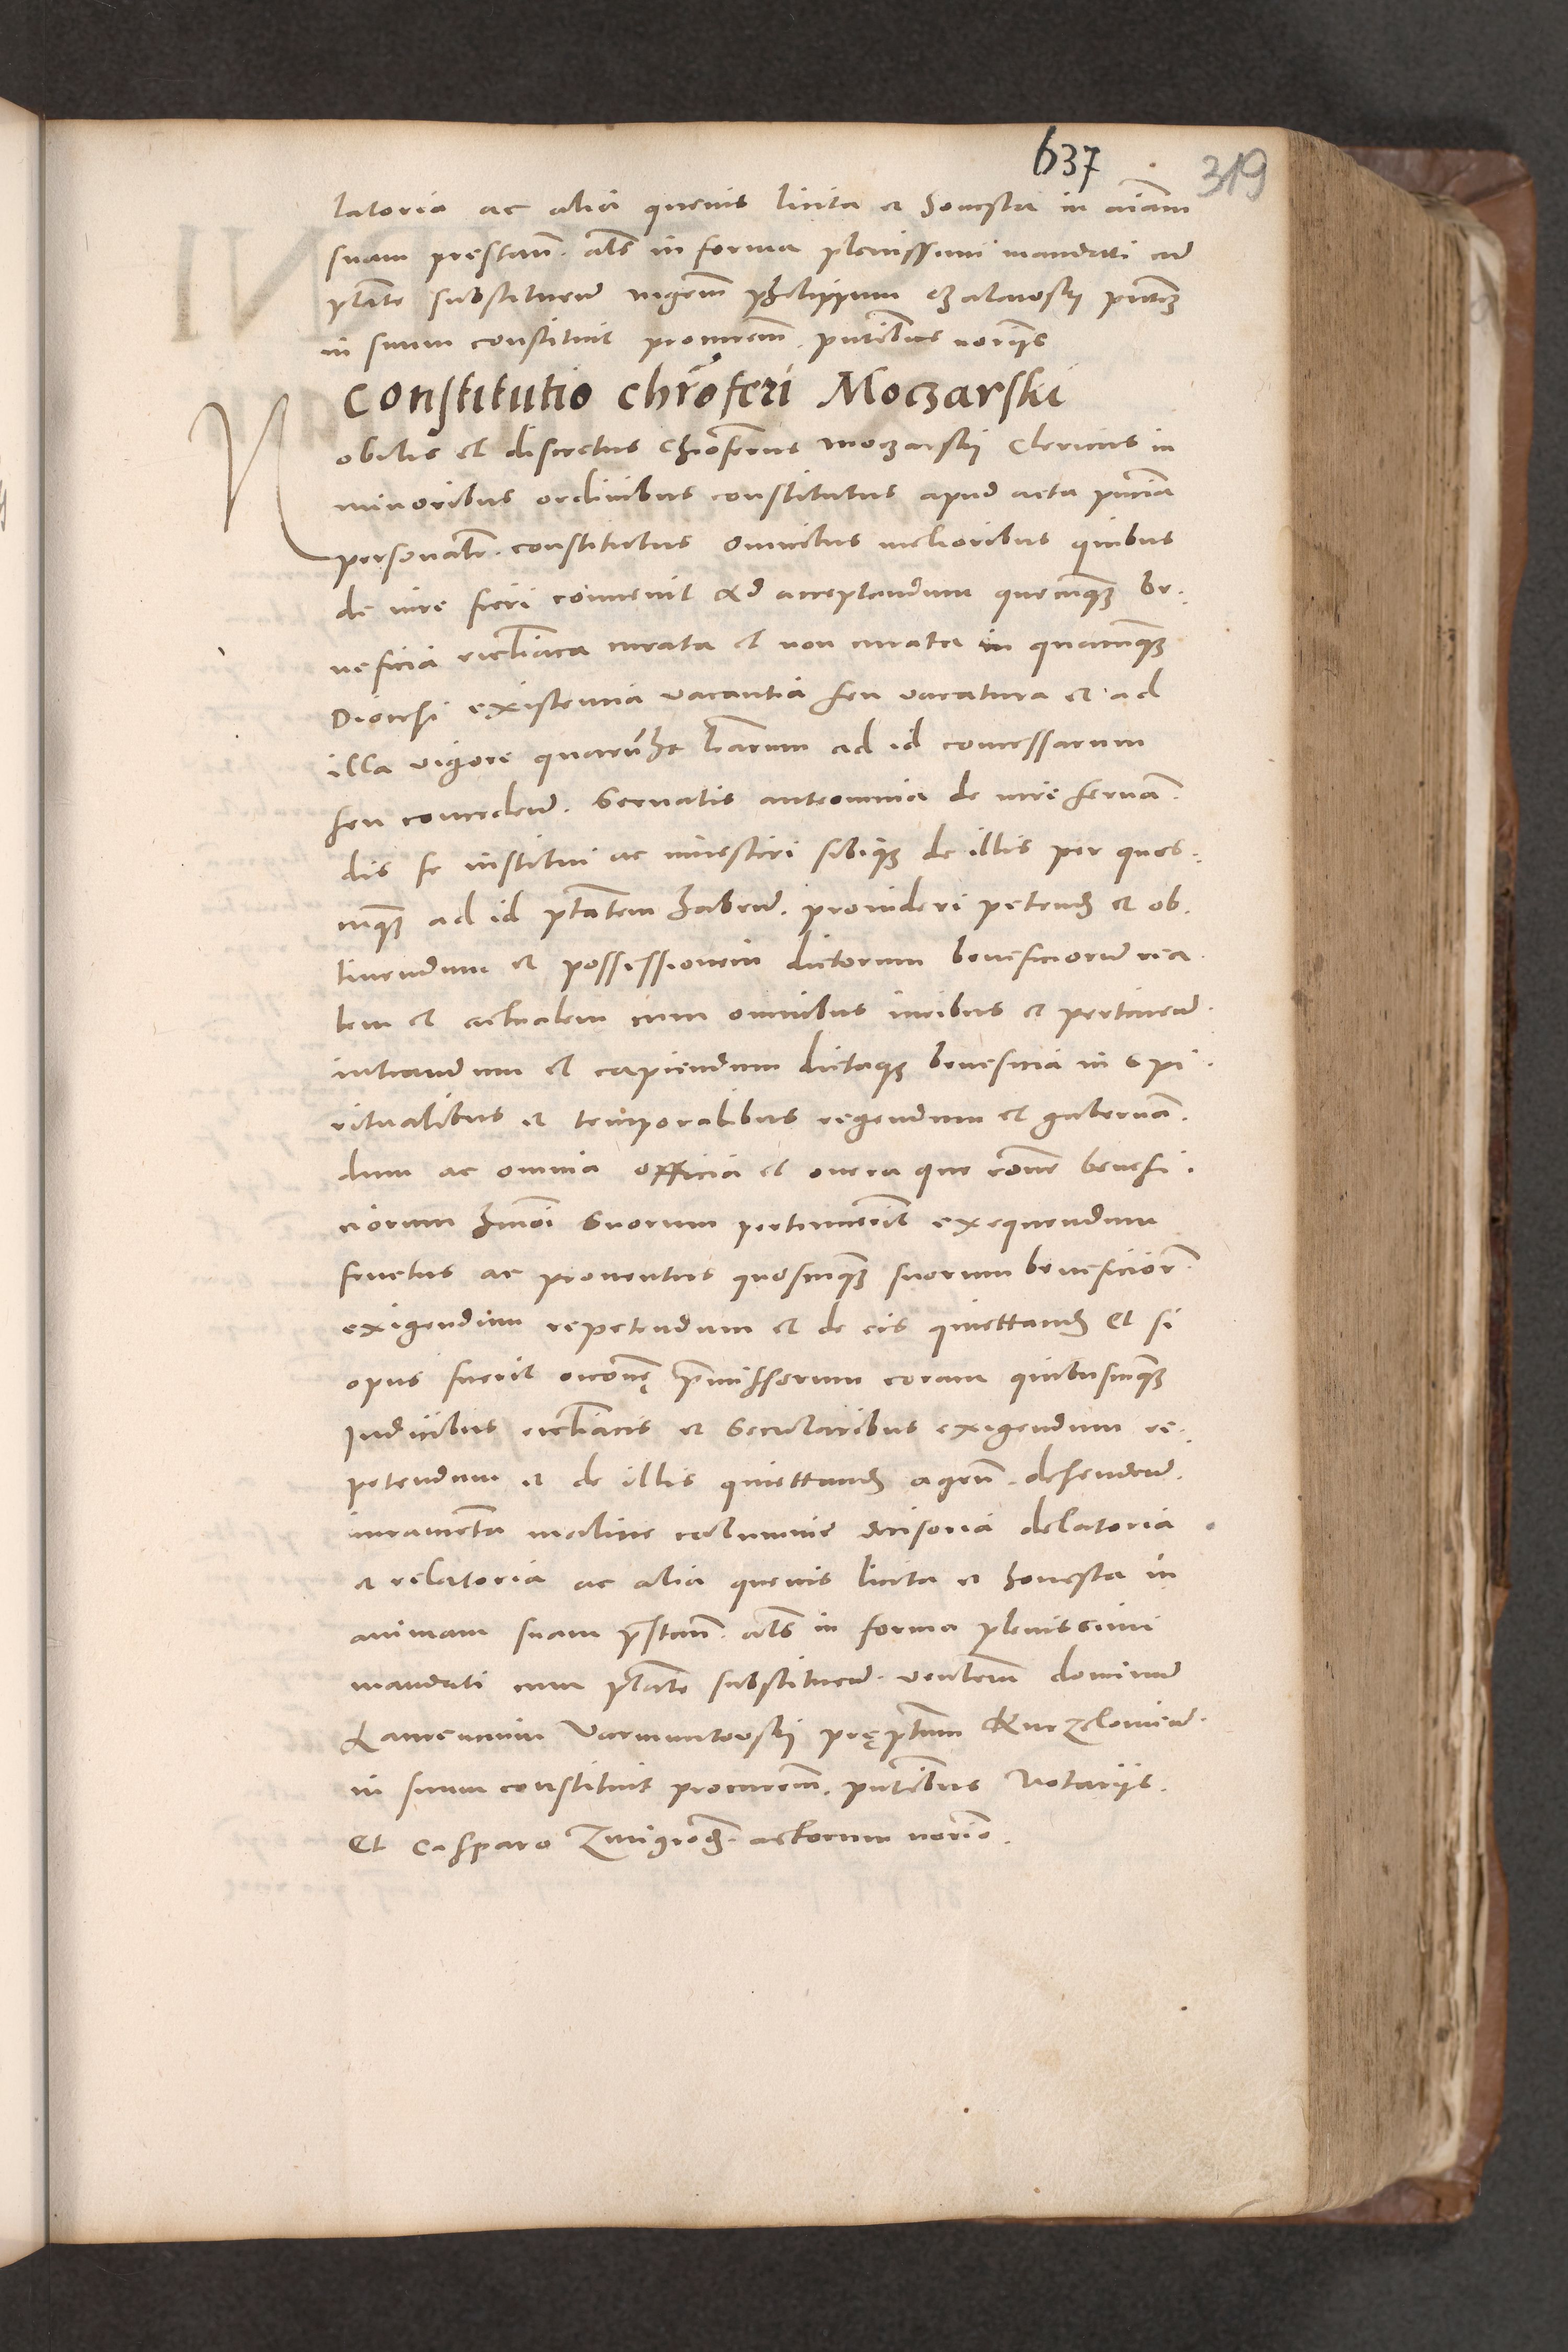 637
319
latoria ac alia quevis licita et honesta in aiam
suam prestan. als in forma plenissimi mandati cu
ptate substituen ingem philippum pntem
in suum constituit procurem. pntibus norijs
Constitutio chroferi Moczarski
Nobilis et discretus chroferus moczarskij Clericus in
minoribus ordinibus constitutus apud acta pncia
personalr. constitutus Omnibus melioribus quibus
de iure fieri convenit Ad acceptandum quecunqz be.
neficia ecclïaca curata et non curata in quacunqz
Diocesi existencia vacantia seu vacatura et ad
illa vigore quarumcunqz lrarum ad id concessarum
seu conceden. Servatis anteomnia de iure servan.
dis se institui ac investiri sibiqz de illis per quos.
cunqz ad id ptatem haben. provideri petend et ob.
tinendum et possessionem dictorum beneficioru rea.
lem et actualem cum omnibus iuribus et pertinen.
intrandum et capiendum dictaqz beneficia in spi.
ritualibus et temporalibus regendum et gubernan.
dum ac omnia officia et onera que rone benefi.
ciorum hmoi suorum pertinuerit exequendum
fructus ac proventus quoscunqz suorum beneficior.
exigendum repetendum et de eis quiettand Et si
opus fuerit occone pmissorum coram quibuscunqz
Iudicibus ecclïacis et Secularibus exigendum re.
petendum et de illis quiettand agen. defenden.
iuramenta malicie calumnie decisoria delatoria
et relatoria ac alia quevis licita et honesta in
animam suam pstan. als in forma plenissimi
mandati cum ptate substituen. venlem dominu
Laurencium preptum Kurzelovien.
in suum constituit procurem. pntibus Notarijs.
Et Casparo actorum norio.